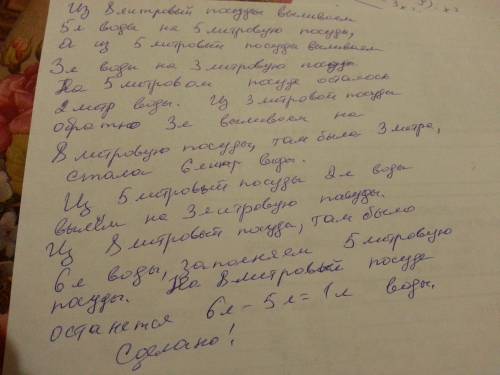 Из 8 литровый посуды выливаем
5л воды на 5 литровую посуды,
А из 5 литровый посуды выливаем
3л воды на 3 литровую посуды
На 5 литровом посуде осталось
2 литр воды. Из 3 литровой посуды
обратно 3л выливаем на
8 литровую посуды, там была 3 литра,
стала 6 литр воды.
Из 5 литровый посуды 2л воды
выльем на 3 литровую посуды.
Из 8 литровый посуды, там было
6л воды, заполняем 5 литровую
посуды. На 8 литровый посуде
останется 6л - 5л = 1л воды.
Сделано!